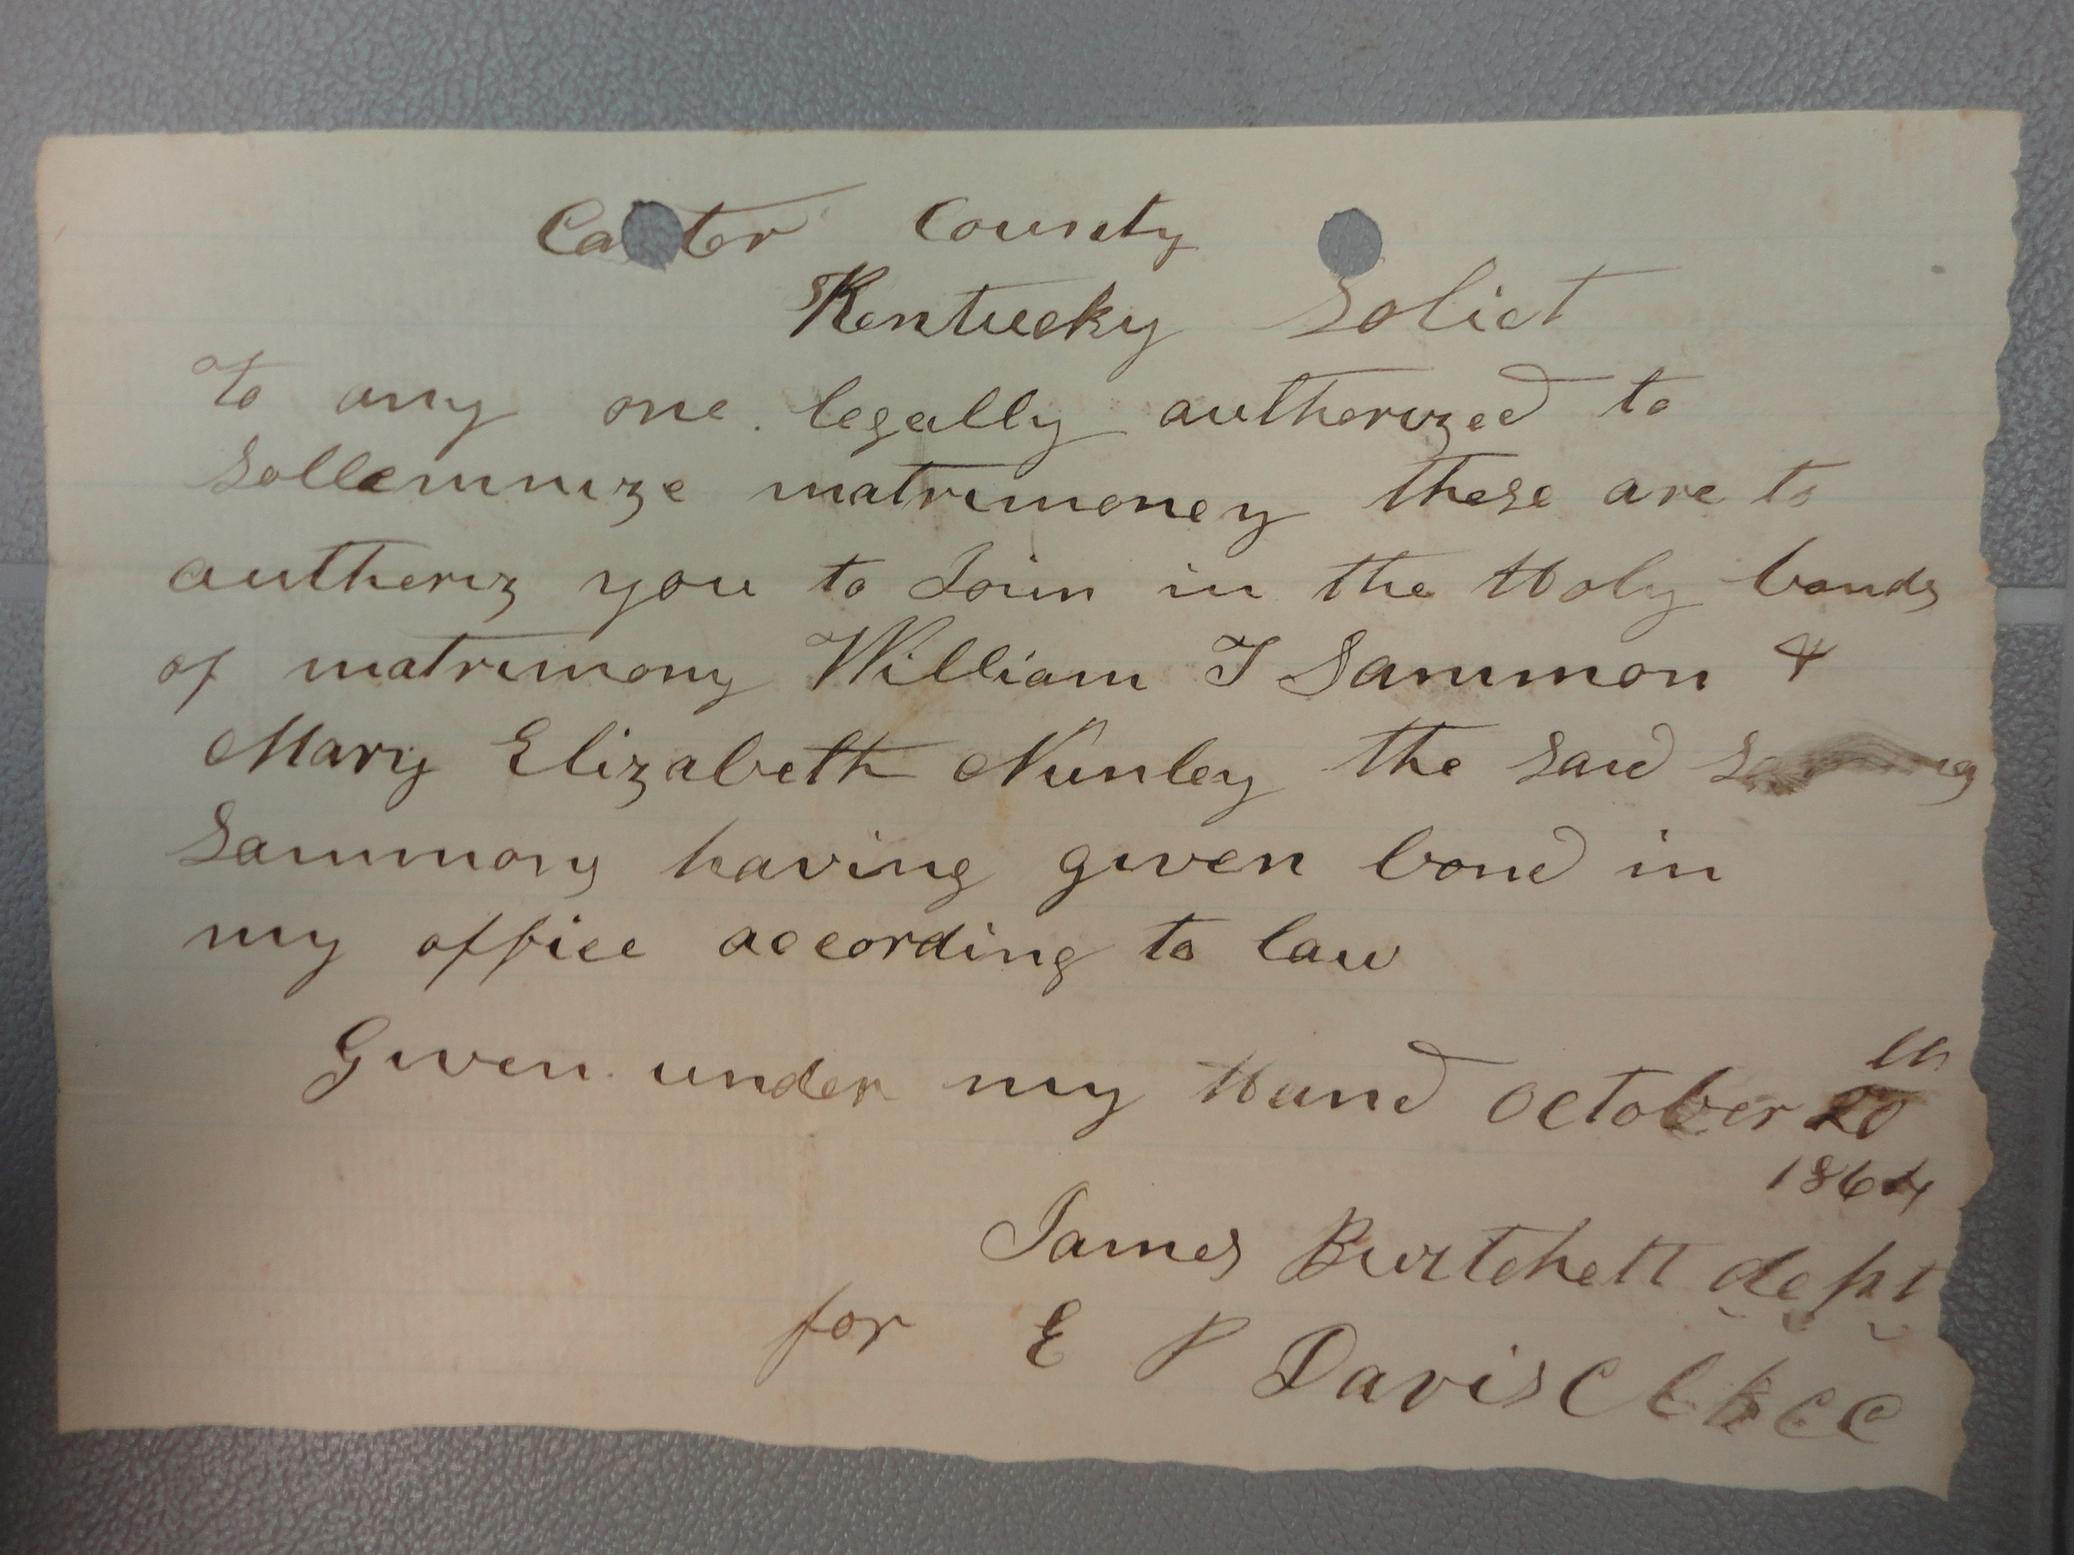 Carter County
Kentucky Solict
To any one legally authorized to
Sollemnize matrimoney these are to
authoriz you to Join in the Holy bonds
of matrimony William T Sammon &
Mary Elizabeth Nunley the said
Sammons having given bond in
my office according to law
Given under my Hand October 20th
1864
James Burtchett dept
for E P Davis Clk CC